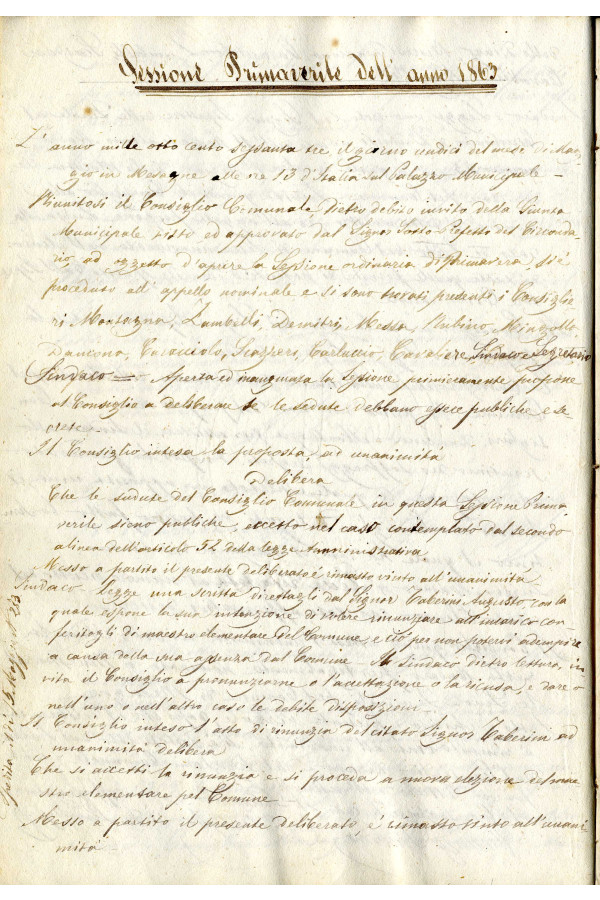 Sessione Primaverile dell'anno 1863
L'anno mille otto cento sessanta tre il giorno undici del mese di Mag
gio in Mesagne alle ore 13 d'Italia sul Palazzo Municipale -
Riunitosi il Consiglio Comunale, dietro debito invito della Giunta
Municipale visto ed approvato dal Signor Sotto-Prefetto del Circonda
rio, ad oggetto d'aprire la Sessione ordinaria di Primavera, si è
proceduto all'appello nominale e si sono trovati presenti i Consiglie
ri, Montagna, Zambelli, Demitri, Messa, Rubino, Mingolla
Dancona, Caracciolo, Scazzeri, Carluccio, Cavaliere, Sindaco e Segretario
Sindaco = Aperta ed inaugurata la Sessione primieramente propone
al Consiglio a deliberare se le sedute debbano essere publiche e se
crete -
Il Consiglio intesa la proposta, ad unanimità
Delibera
Che le sedute del Consiglio Comunale in questa Sessione Prima
verile sieno publiche, eccetto nel caso contemplato dal secondo
alinea dell'articolo 52 della legge Amministrativa.
Messo a partito il presente deliberato è rimasto vinto all'unanimità
Sindaco Legge una scritta direttagli dal Signor Taberini Augusto con la
quale espone la sua intenzione di volere rinunziare all'incarico con
feritogli di maestro elementare del Comune, e ciò per non potervi adempire
a causa della sua assenza dal Comune - Il Sindaco dietro lettura, in
vita il Consiglio a pronunziarne o l'accettazione o la ricusa, e dare o
nell'uno o nell'altro caso le debite disposizioni -
Il Consiglio inteso l'atto di rinunzia del citato Signor Taberini ad
unanimità delibera
Che si accetti la rinunzia e si proceda a nuova elezione del mae
stro elementare pel Comune -
Messo a partito il presente deliberato, è rimasto vinto all'unani
mità -